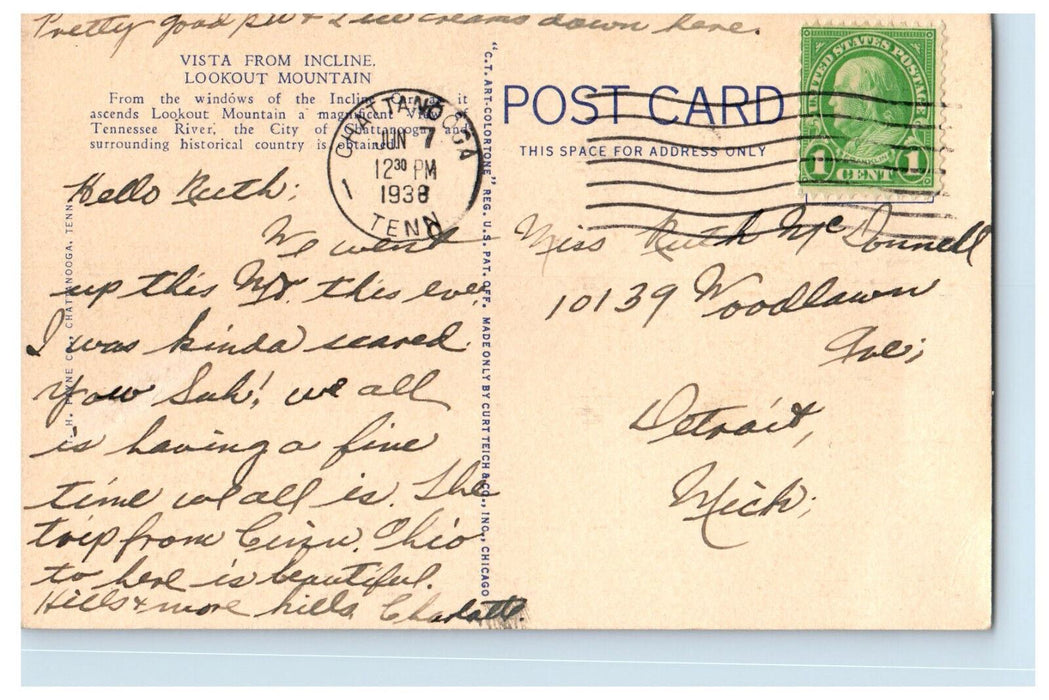 Pretty good pie & 2 ice creams down here.
VISTA FROM INCLINE,
LOOKOUT MOUNTAIN
From the windows of the Incline Car as it
ascends Lookout Mountain a magnificent View of
Tennessee River, the City of Chattanooga and
surrounding historical country is obtained.
Hello Ruth:
We went
up this Mt. this eve.
I was kinda scared.
Yaw Suh! we all
is having a fine
time we all is. The
trip from Cinn. Ohio
to here is beautiful.
Hills & more hills. Charlotte.
CHATTANOOGA, TENN.
"C.T. ART-COLORTONE" REG. U.S. PAT. OFF. MADE ONLY BY CURT TEICH & CO., INC., CHICAGO
CHATTANOOGA
JUN 7
12 30 PM
1938
TENN
1
POST CARD
THIS SPACE FOR ADDRESS ONLY
UNITED STATES POSTAGE
FRANKLIN
1 CENT 1
Miss Ruth McDonnell
10139 Woodlawn
Ave;
Detroit,
Mich;